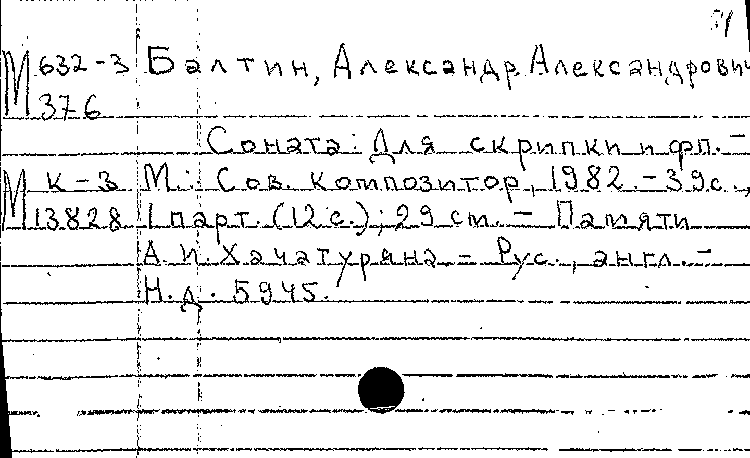 М 632-3 Балтин, Александр Александрович
376
Соната: Для скрипки и фп. –
М К-3 М.: Сов. композитор, 1982. – 39 с.,
13828 1 парт. (12 с.); 29 см. – Памяти
А. И. Хачатуряна – Рус., англ. –
Н. д. 5945.